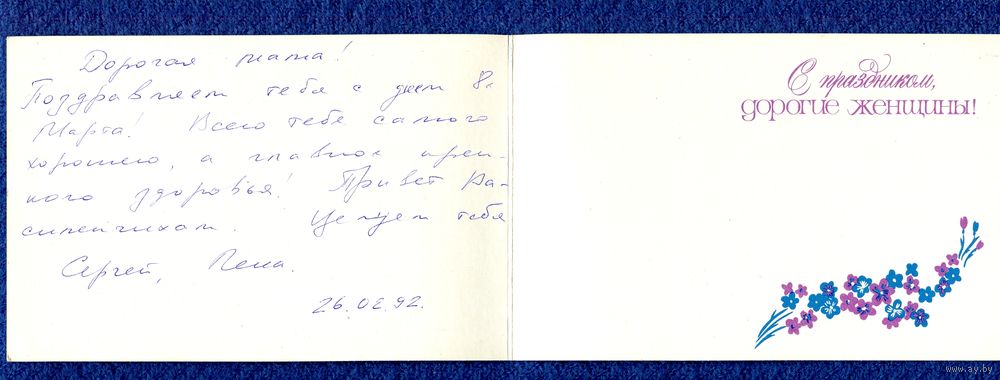 Дорогая мама!
Поздравляем тебя с днем 8-
Марта! Всего тебе самого
хорошего, а главное креп-
кого здоровья! Привет Ва-
Целуем тебя
Сергей, Лена.
26.02.92.
С праздником,
дорогие женщины!
www.ay.by